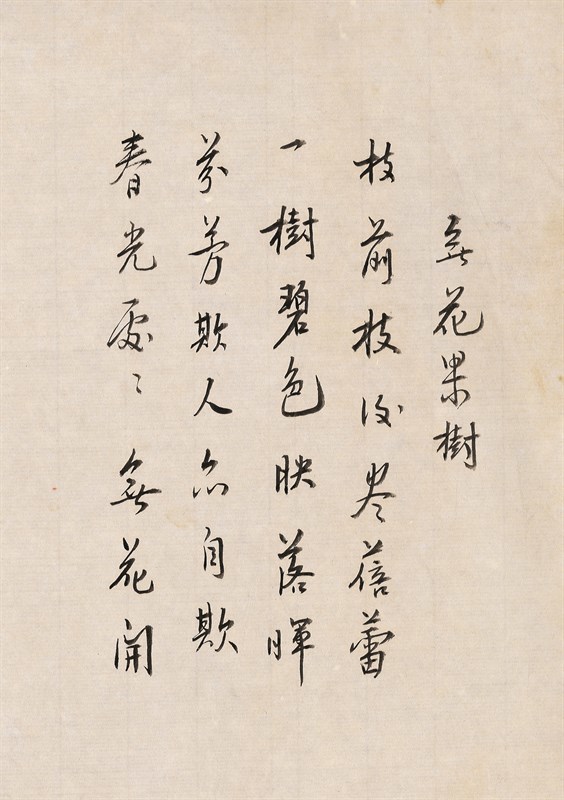 無花果樹
枝前枝後盡蓓蕾
一樹碧色映落暉
芬芳欺人亦自欺
春光處〻無花開